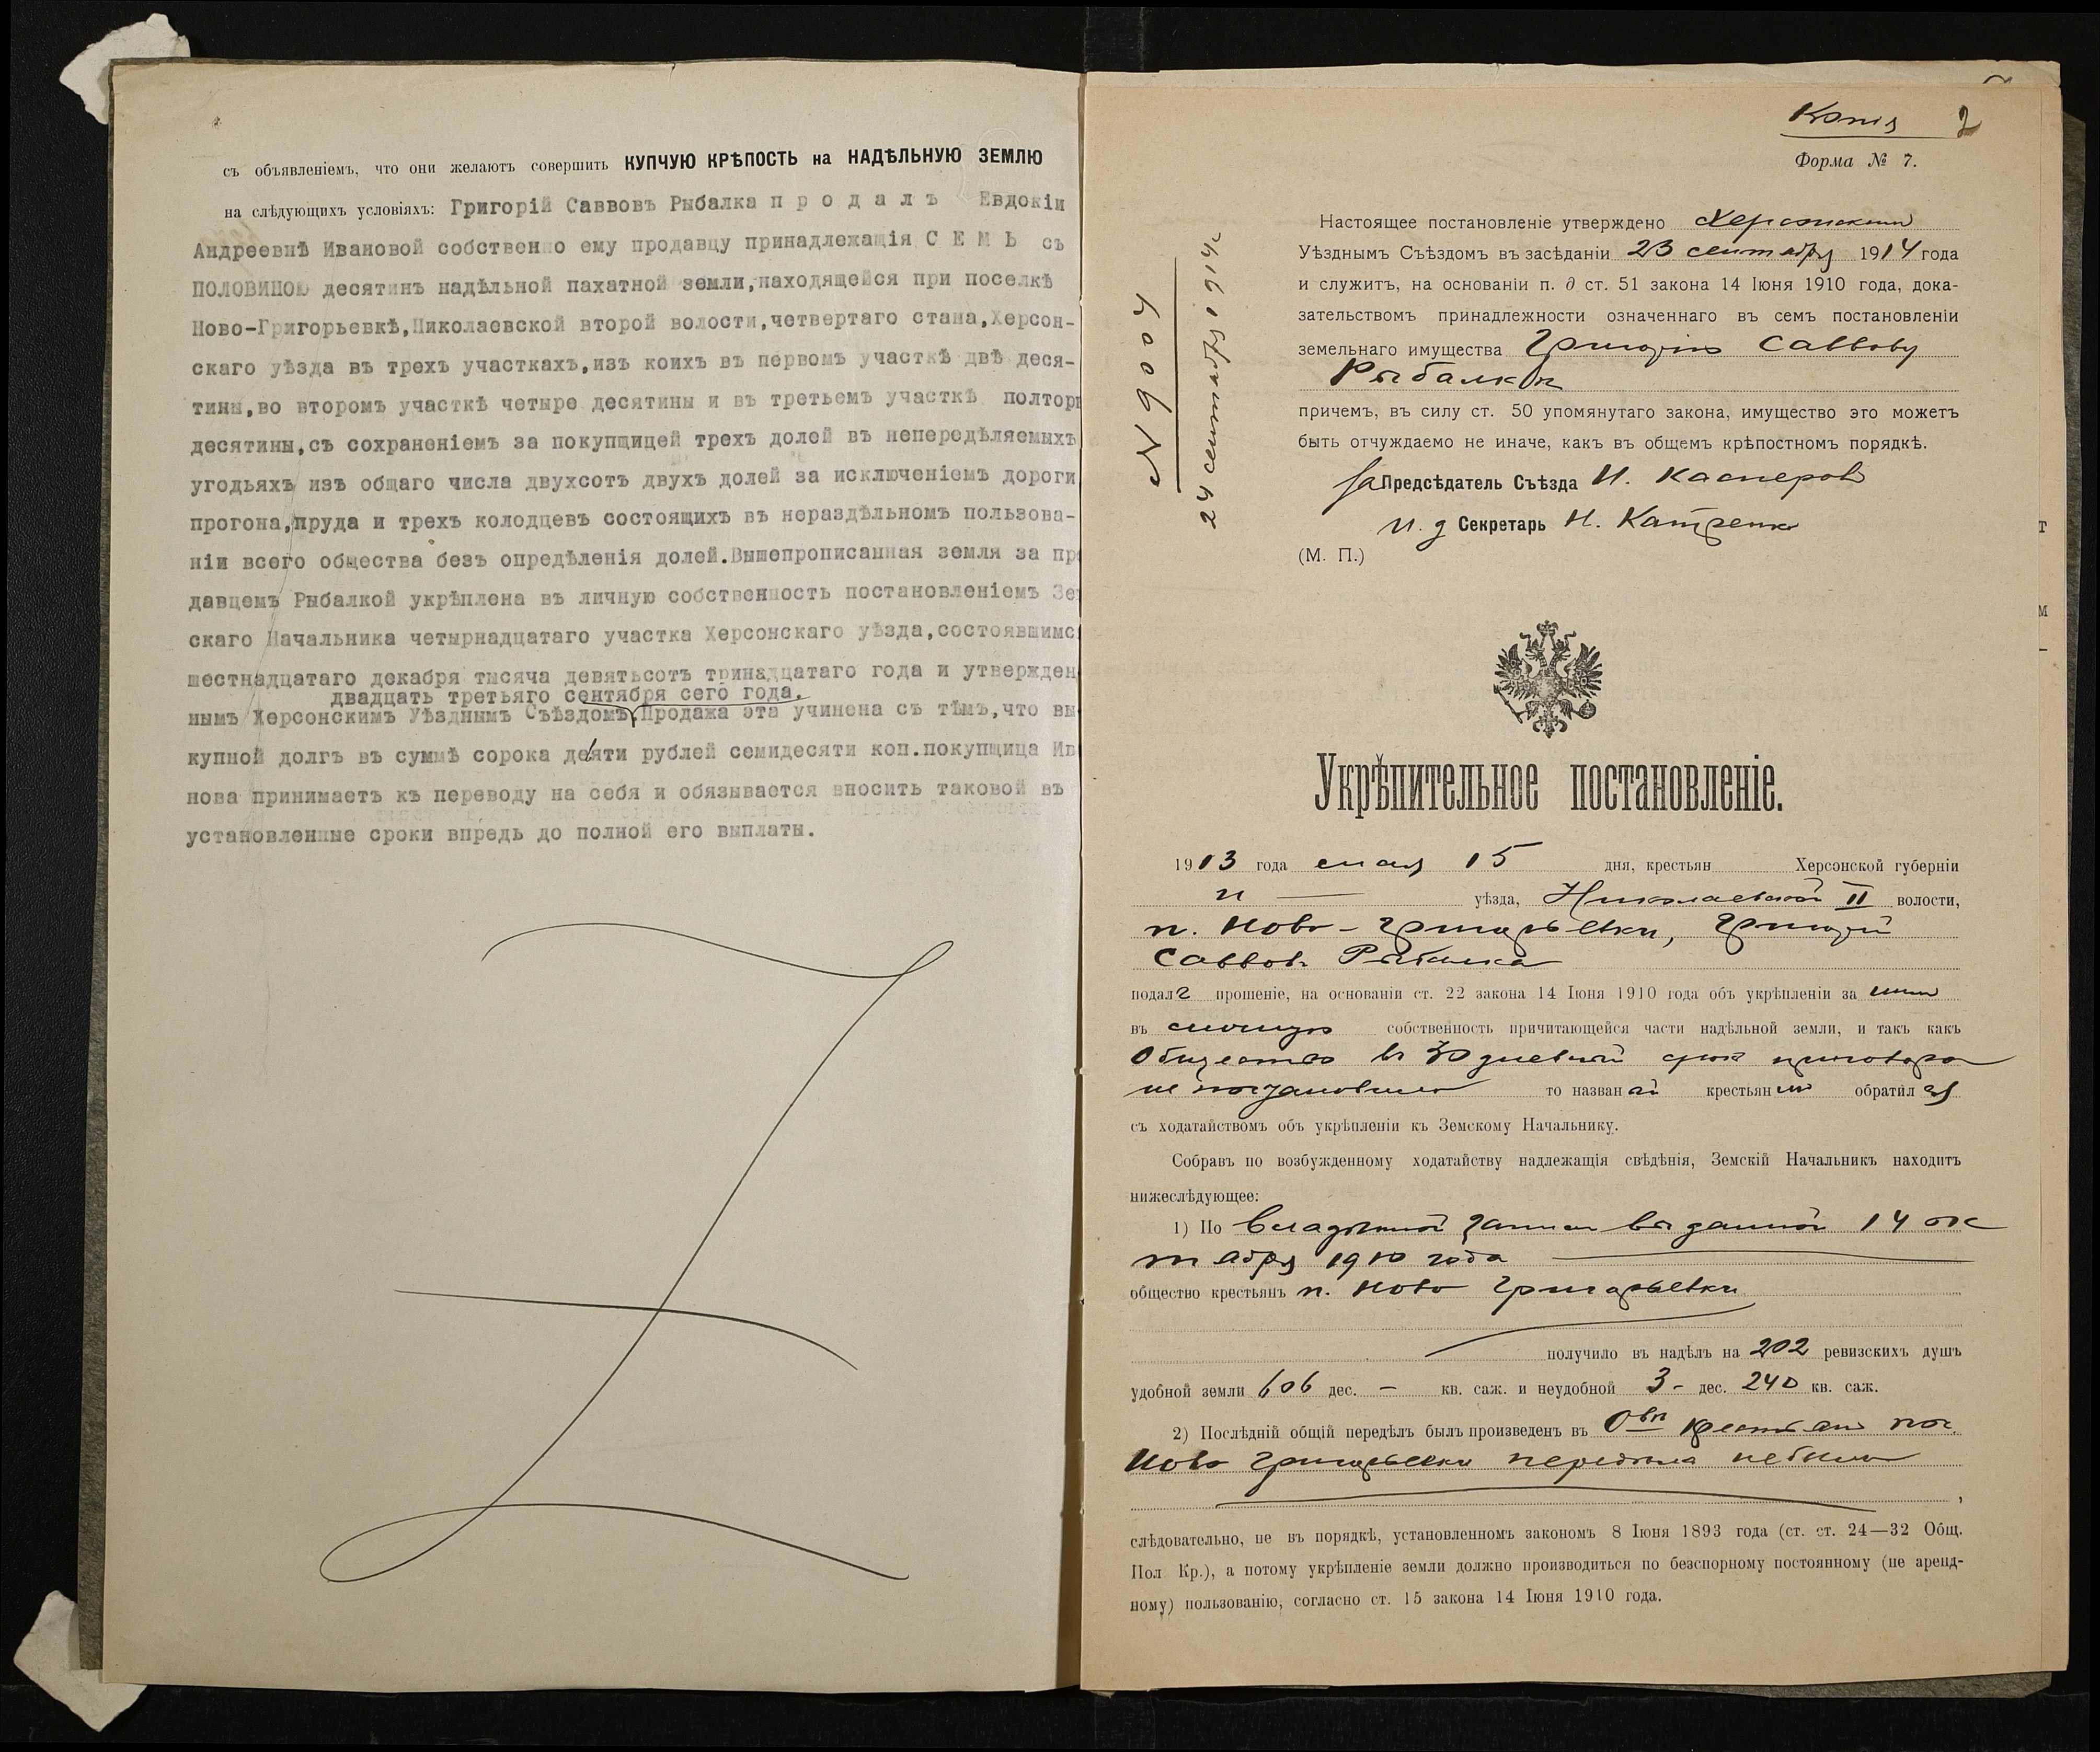 съ объявленіемъ, что они желаютъ совершить КУПЧУЮ КРѢПОСТЬ на НАДѢЛЬНУЮ ЗЕМЛЮ
на слѣдующихъ условіяхъ: Григорій Саввовъ Рыбалка п р о д а л ъ Евдокіи
Андреевнѣ Ивановой собственно ему продавцу принадлежащія С Е М Ь съ
ПОЛОВИНОЮ десятинъ надѣльной пахатной земли,находящейся при поселкѣ
Ново-Григорьевкѣ,Николаевской второй волости,четвертаго стана,Херсон-
скаго уѣзда въ трехъ участкахъ,изъ коихъ въ первомъ участкѣ двѣ деся-
тины,во второмъ участкѣ четыре десятины и въ третьемъ участкѣ полторы
десятины,съ сохраненіемъ за покупщицей трехъ долей въ непередѣляемыхъ
угодьяхъ изъ общаго числа двухсотъ двухъ долей за исключеніемъ дороги
прогона,пруда и трехъ колодцевъ состоящихъ въ нераздѣльномъ пользова-
ніи всего общества безъ опредѣленія долей.Вышепрописанная земля за пр
давцемъ Рыбалкой укрѣплена въ личную собственность постановленіемъ Зе
скаго Начальника четырнадцатаго участка Херсонскаго уѣзда,состоявшимс
шестнадцатаго декабря тысяча девятьсотъ тринадцатаго года и утвержден
двадцать третьяго сентября сего года.
нымъ Херсонскимъ Уѣзднымъ Съѣздомъ.Продажа эта учинена съ тѣмъ,что вы
купной долгъ въ суммѣ сорока девяти рублей семидесяти коп.покупщица Ив
нова принимаетъ къ переводу на себя и обязывается вносить таковой въ
установленные сроки впредь до полной его выплаты.
Копія 2
Форма № 7.
N 9004
24 сентября 1914 г
Настоящее постановленіе утверждено Херсонскимъ
Уѣзднымъ Съѣздомъ въ засѣданіи 23 сентября 1914 года
и служитъ, на основаніи п. д ст. 51 закона 14 Іюня 1910 года, дока-
зательствомъ принадлежности означеннаго въ семъ постановленіи
земельнаго имущества Григорію Саввову
Рыбалкѣ
причемъ, въ силу ст. 50 упомянутаго закона, имущество это можетъ
быть отчуждаемо не иначе, какъ въ общемъ крѣпостномъ порядкѣ.
За Предсѣдатель Съѣзда И. Касперов
И. д Секретарь Н.
(М. П.)
Укрѣпительное постановленіе.
1913 года мая 15 дня, крестьян Херсонской губерніи
и — уѣзда, Николаевской II волости,
п. Ново-Григорьевки, Григорій
Саввовъ Рыбалка
подалъ прошеніе, на основаніи ст. 22 закона 14 Іюня 1910 года объ укрѣпленіи за нимъ
въ личную собственность причитающейся части надѣльной земли, и такъ какъ
Общество въ 30 дневный срокъ приговора
не постановило то названый крестьянинъ обратился
съ ходатайствомъ объ укрѣпленіи къ Земскому Начальнику.
Собравъ по возбужденному ходатайству надлежащія свѣдѣнія, Земскій Начальникъ находитъ
нижеслѣдующее:
1) По Владѣнной записи выданной 14 ок
тября 1910 года
общество крестьянъ п. Ново Григорьевки
получило въ надѣлъ на 202 ревизскихъ душъ
удобной земли 606 дес. — кв. саж. и неудобной 3 - дес. 240 кв. саж.
2) Послѣдній общій передѣлъ былъ произведенъ въ Овѣ крестьян пос.
Ново Григорьевки передѣла не было
,
слѣдовательно, не въ порядкѣ, установленномъ закономъ 8 Іюня 1893 года (ст. ст. 24—32 Общ.
Пол Кр.), а потому укрѣпленіе земли должно производиться по безспорному постоянному (не аренд-
ному) пользованію, согласно ст. 15 закона 14 Іюня 1910 года.